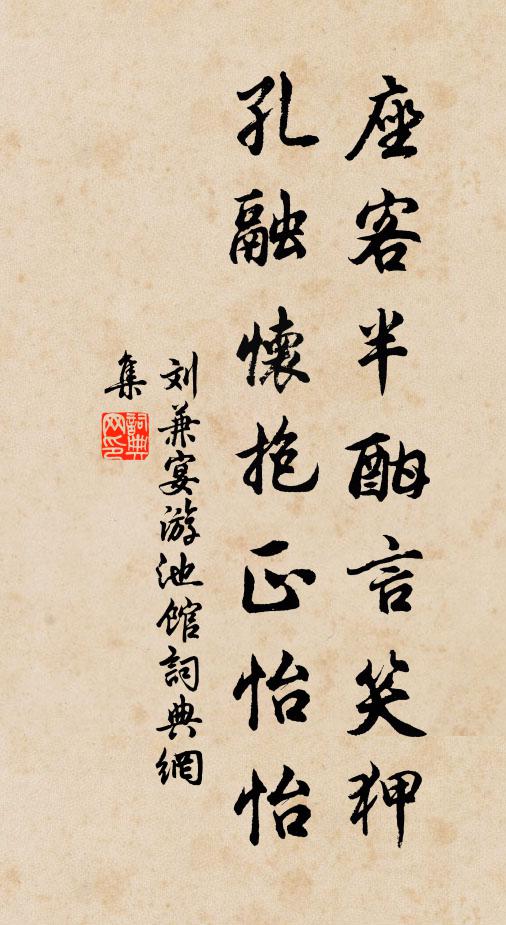 座客半酣言笑狎
孔融懷抱正怡怡
刘兼宴游池館詞典網
集
詞典网印